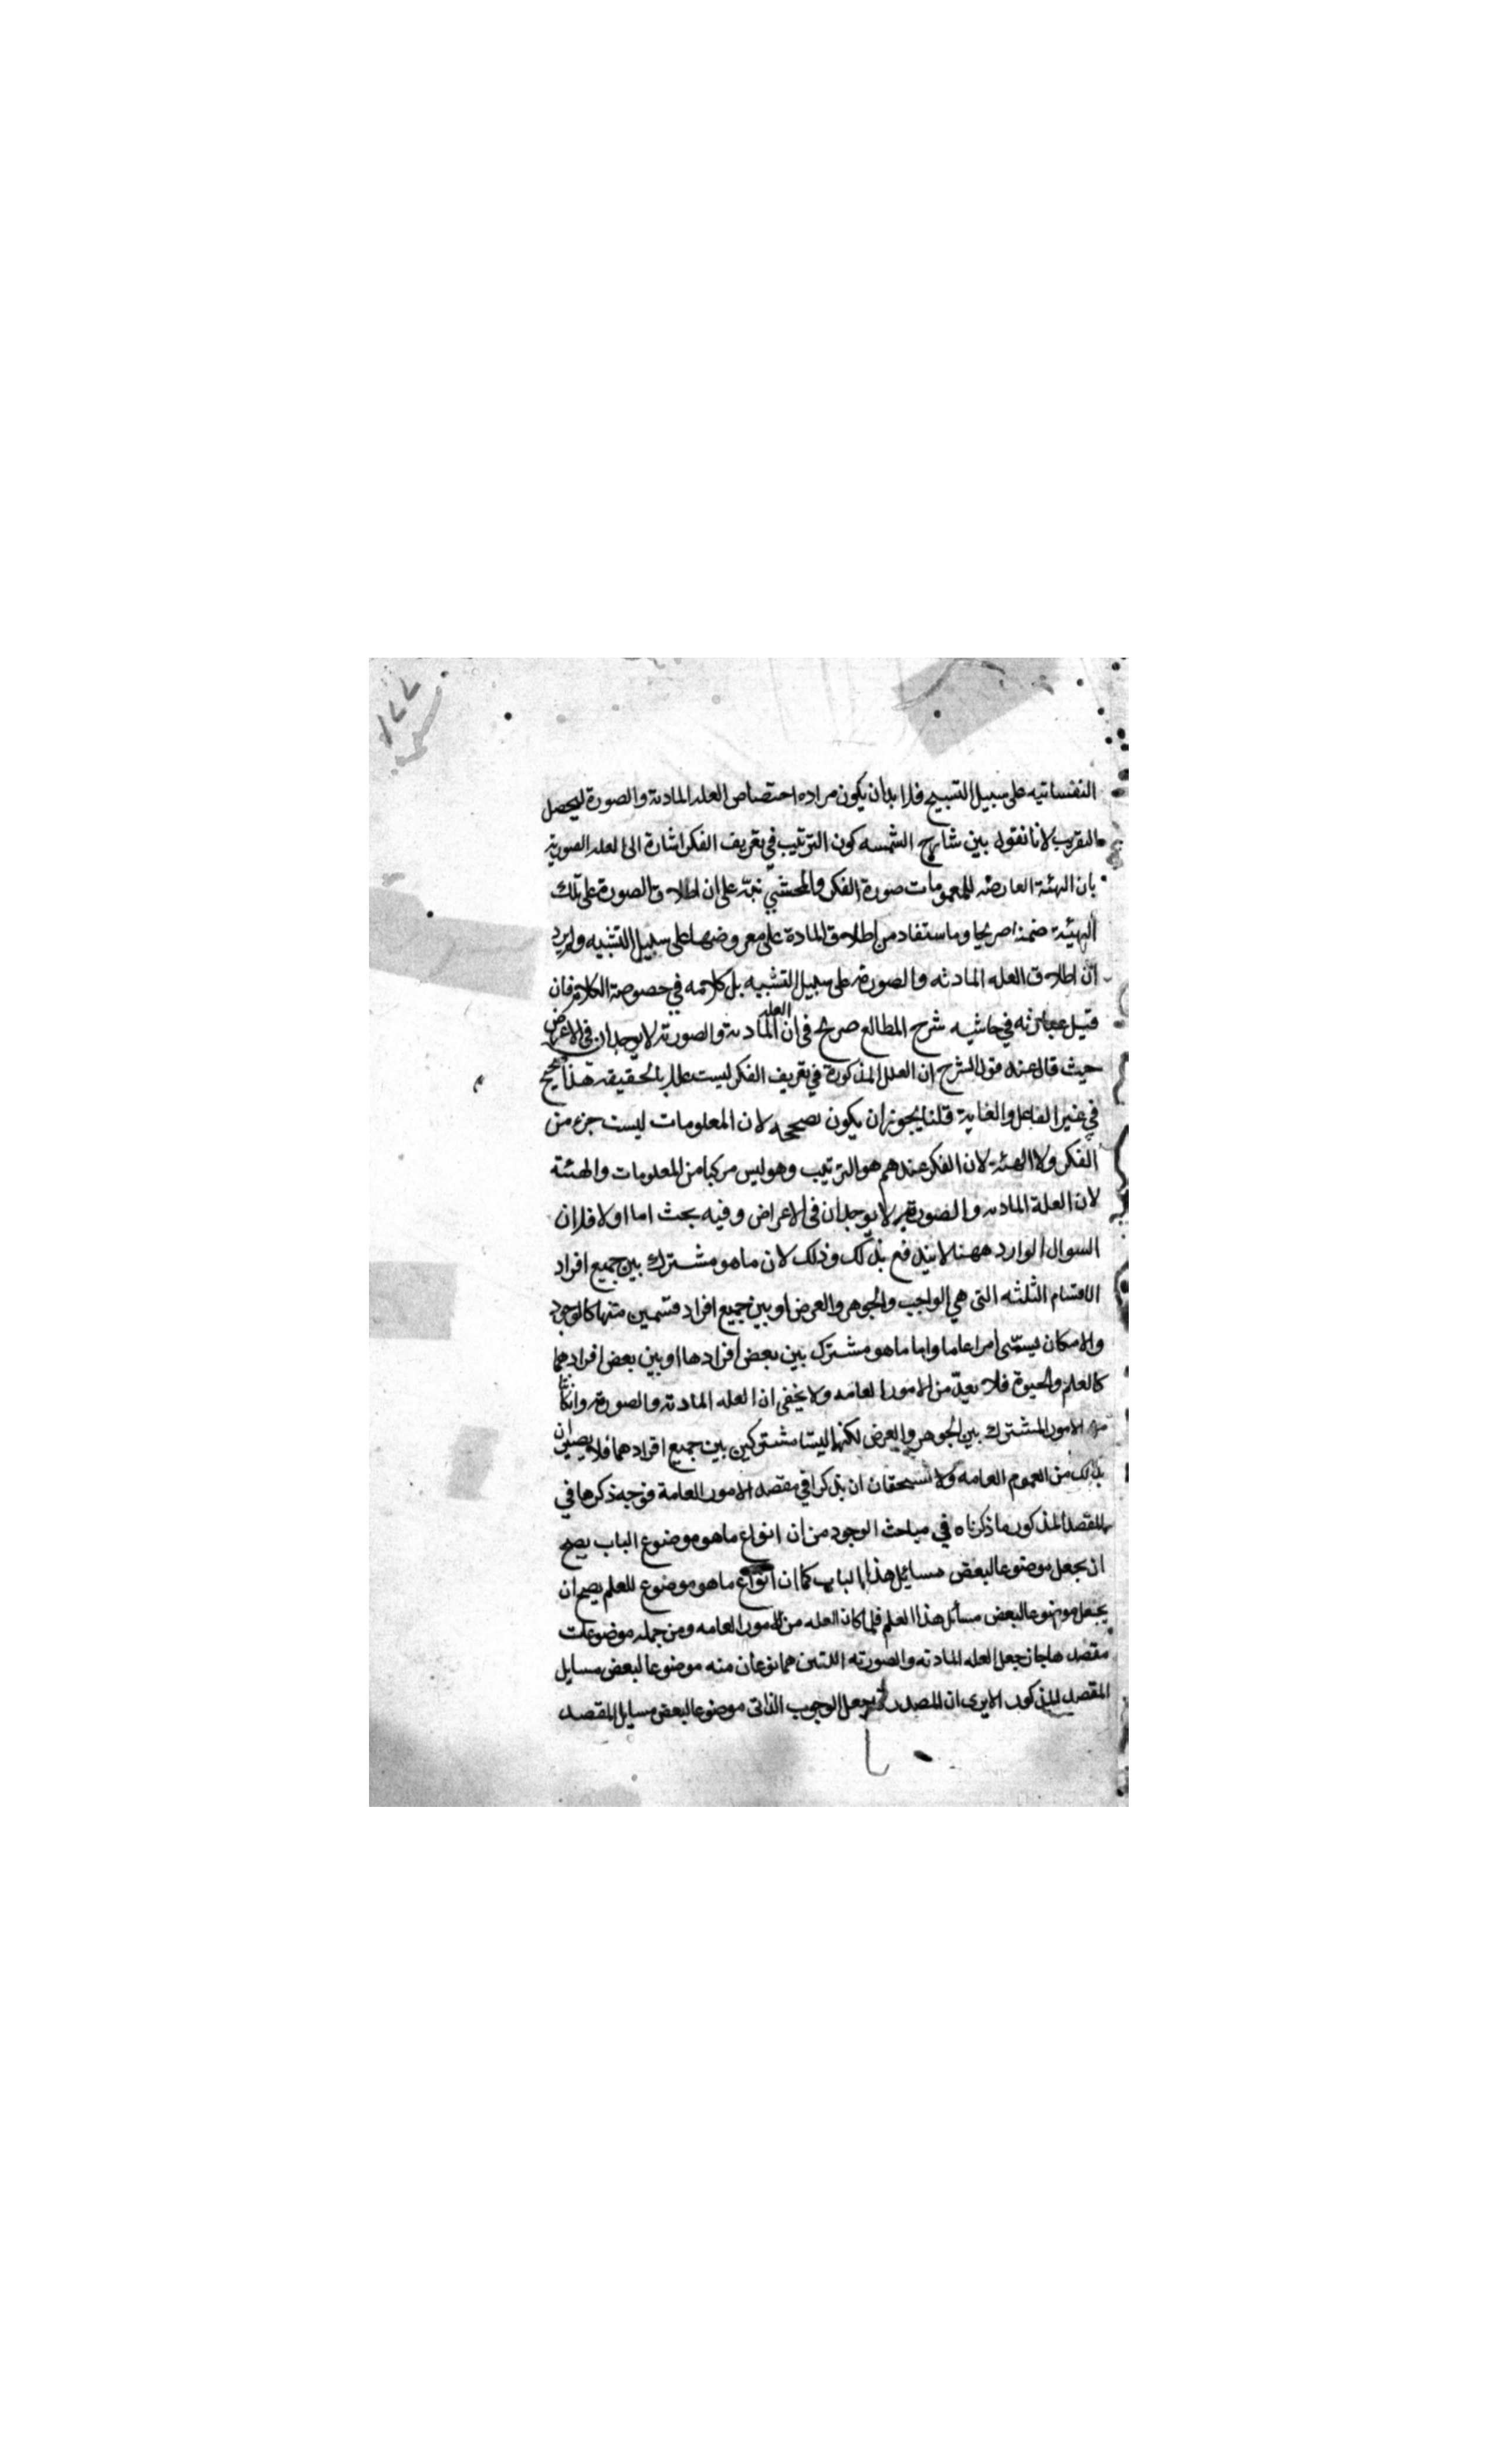 النفسانيه على سبيل التشبيه فلا بد ان يكون مراده اختصاص العله المادية والصورة ليحصل
التقريب لانا نقول بين شارح الشمسه كون الترتيب في تعريف الفكر اشارة الى العله الصورية
بان الهيئة العارضه للمعلومات صورة الفكر والمحشي نبّه على ان اطلاق الصورة على تلك
الهيئة ضمنا صريحا وما ستفاد من اطلاق المادة على معروضها على سبيل التشبيه ولم يرد
ان اطلاق العله المادية والصورة على سبيل التشبيه بل كلامه في خصوصة الكلام فان
قيل عبارته في حاشيه شرح المطالع صريح في ان العله المادية والصورية لا يوجدان في الاعراض
حيث قال عند قول الشرح ان العلل المذكورة في تعريف الفكر ليست عللا بالحقيقه هذا صحيح
في غير الفاعل والغاية قلنا يجوز ان يكون تصحيحه لان المعلومات ليست جزء من
الفكر ولا الهيئة لان الفكر عندهم هو الترتيب وهو ليس مركبا من المعلومات والهيئة
لان العلة المادية والصورة لا يوجدان في الاعراض وفيه بحث اما اولا فلان
السوال الوارد ههنا لا يندفع بذلك وذلك لان ما هو مشترك بين جميع افراد
الاقسام الثلثه التي هي الواجب والجوهر والعرض او بين جميع افراد قسمين منها كالوجود
والامكان يسمّى امرا عاما واما ما هو مشترك بين بعض افرادها او بين بعض افرادهما
كالعلم والحيوة فلا يعدّ من الامور العامه ولا يخفى ان العله المادية والصورة وان كانتا
من الامور المشترك بين الجوهر والعرض لكنها ليستا مشتركين بين جميع افرادهما فلا يصيران
بذلك من العموم العامه ولا تستحقان ان يذكرا في مقصد الامور العامة فوجه ذكرها في
المقصد المذكور ما ذكرناه في مباحث الوجود من ان انواع ما هو موضوع الباب يصح
ان يجعل موضوعا لبعض مسائل هذا الباب كما ان انواع ما هو موضوع للعلم يصح ان
يجعل موضوعا لبعض مسائل هذا العلم فلما كان العله من الامور العامه ومن جمله موضوعات
مقصدها جاز جعل العله المادية والصورته اللتين هما نوعان منه موضوعا لبعض مسايل
المقصد المذكور الا يرى ان المصدر لم يجعل الوجوب الذاتي موضوعا لبعض مسايل المقصد